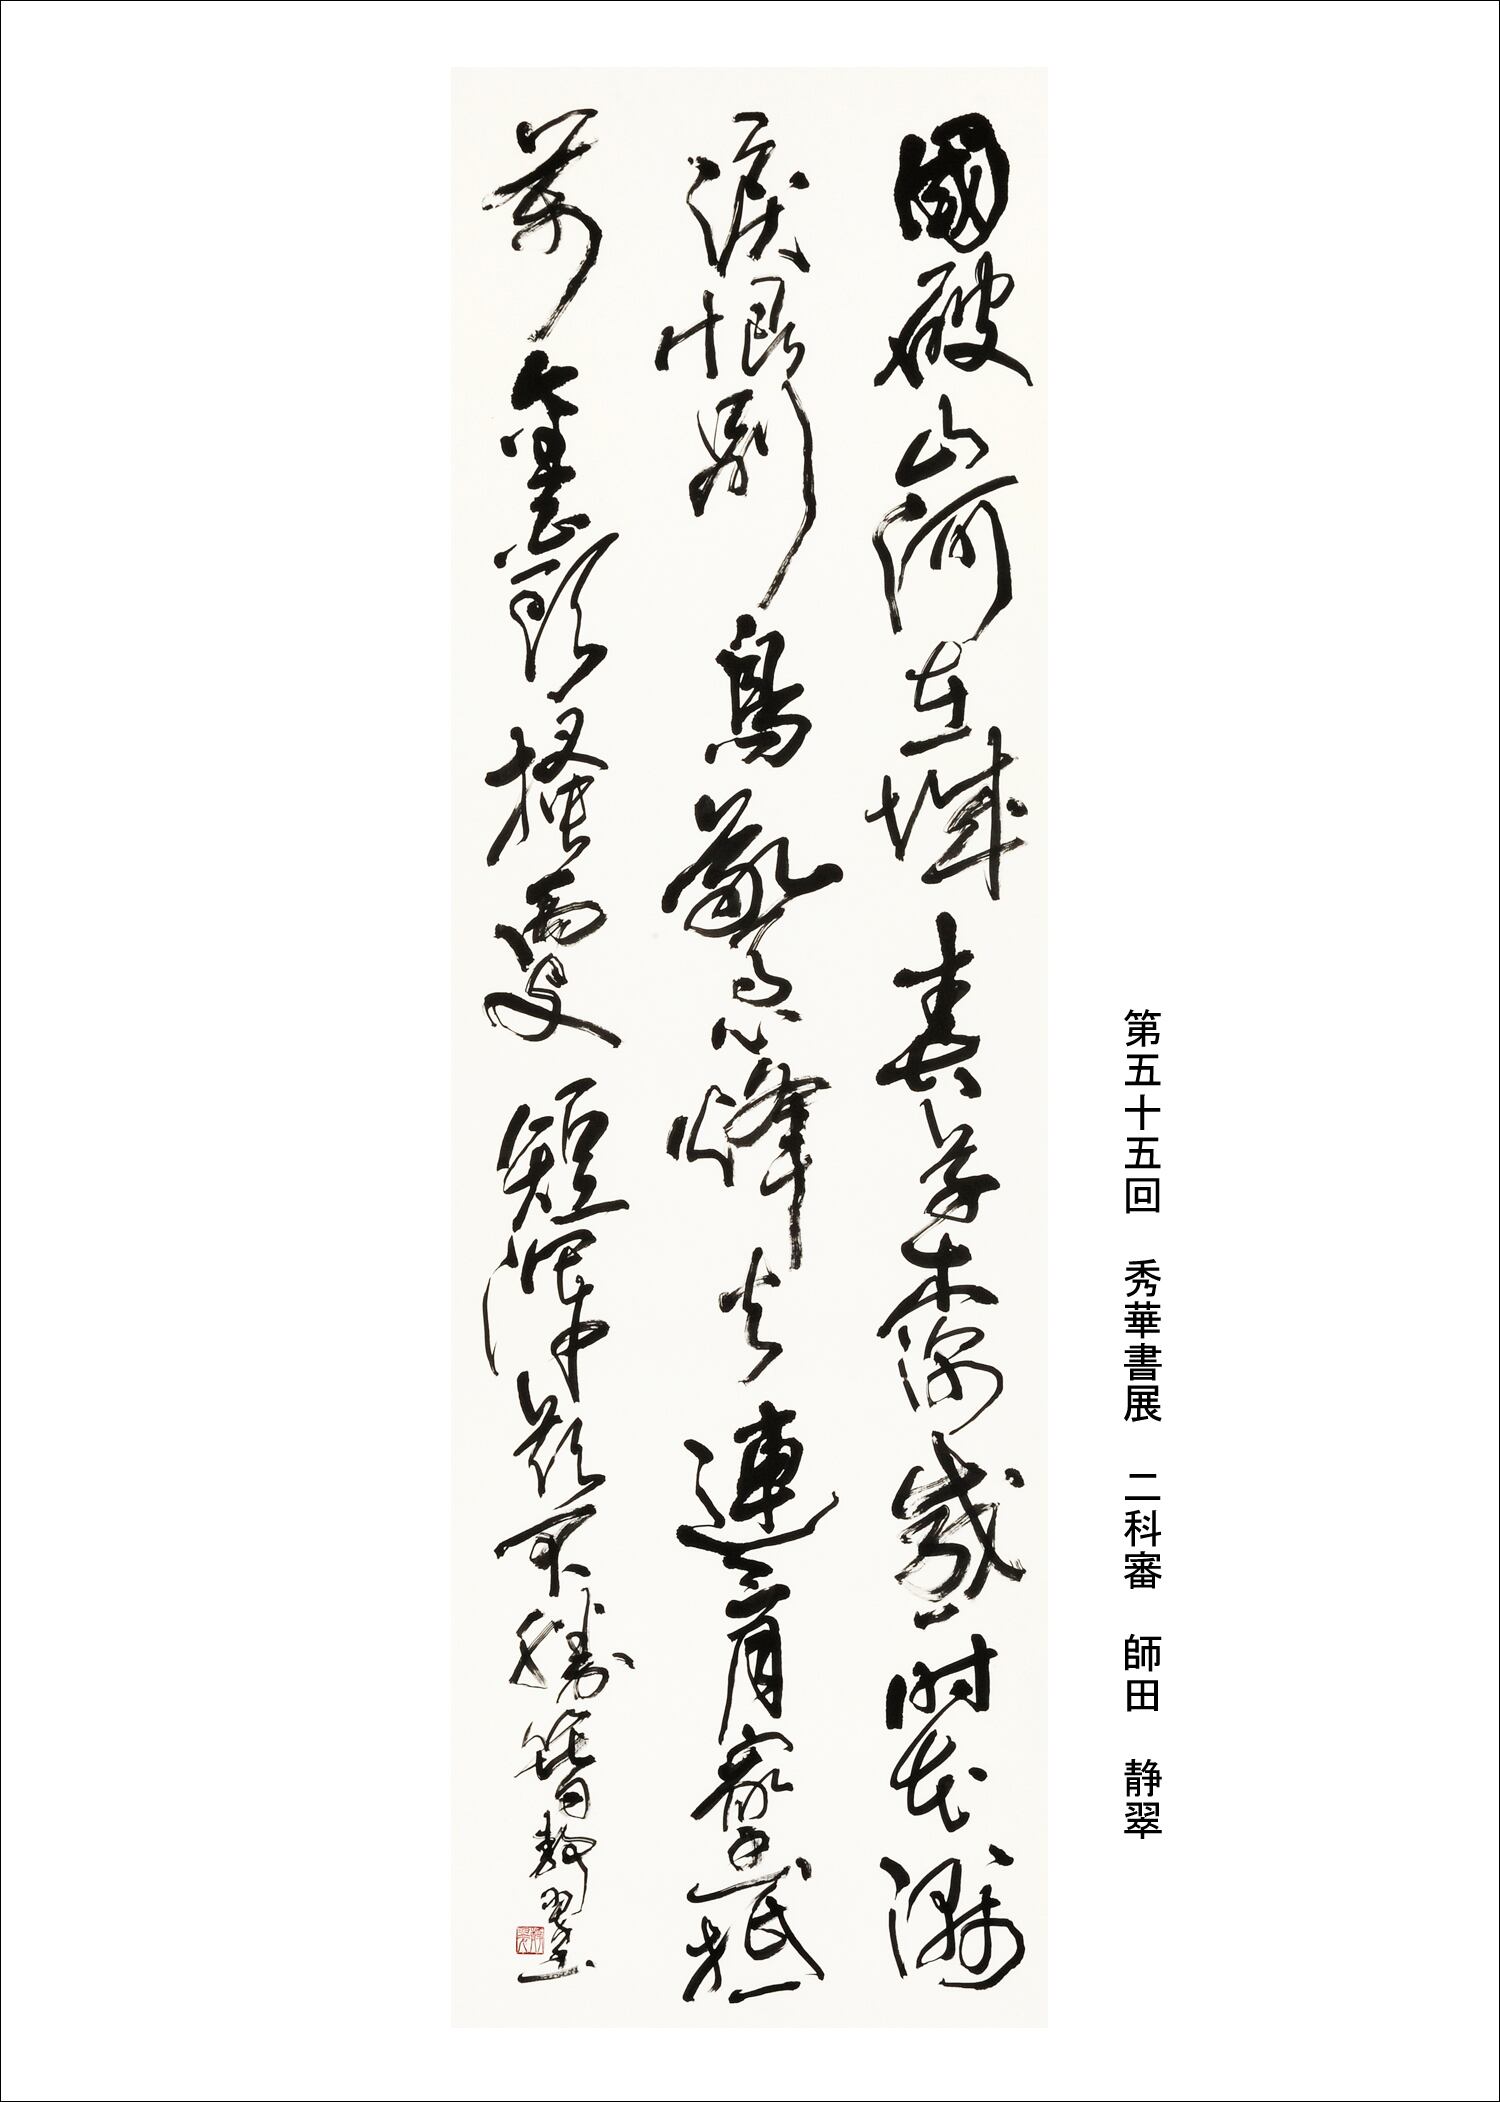 第五十五回　秀華書展　二科審　師田　静翠
國破山河在城春草木深感時花濺
淚恨別鳥驚心烽火連三月家書抵
萬金白頭搔更短渾欲不勝簪静翠